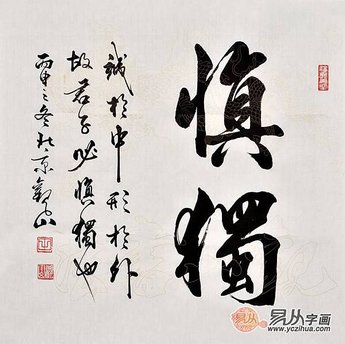 慎獨
誠於中形於外
故君子必慎獨也
丙申之冬於京觀山
易从字画
www.yczihua.com